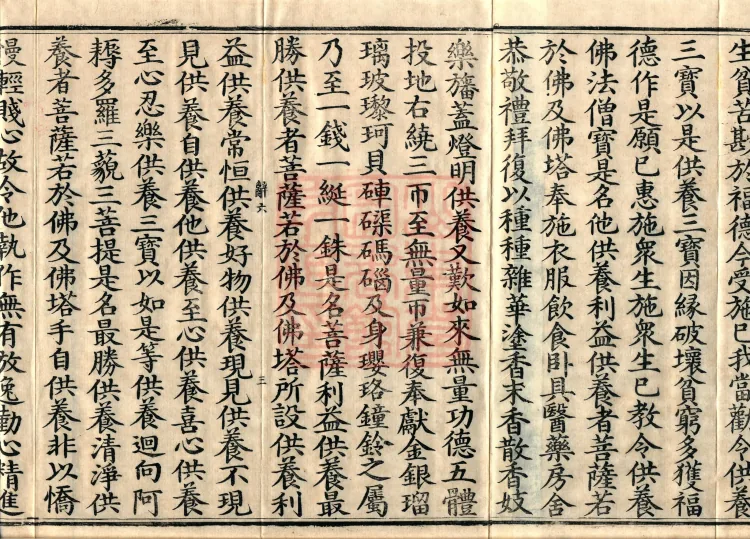 生貧苦斟於福德令受施已我當勸令供養
三寶以是供養三寶因緣破壞貧窮多獲福
德作是願已惠施衆生施衆生已教令供養
佛法僧寶是名他供養利益供養者菩薩若
於佛及佛塔奉施衣服飲食卧具醫藥房舍
恭敬禮拜復以種種雜華塗香末香散香妓
樂旛蓋燈明供養又歎如來無量功德五體
投地右繞三帀至無量帀兼復奉獻金銀瑠
璃玻瓈珂貝硨磲碼碯及身瓔珞鐘鈴之屬
乃至一錢一綖一銖是名菩薩利益供養最
勝供養者菩薩若於佛及佛塔所設供養利
辭六 三
益供養常恒供養好物供養現見供養不現
見供養自供養他供養至心供養喜心供養
至心忍樂供養三寶以如是等供養迴向阿
耨多羅三藐三菩提是名最勝供養清淨供
養者菩薩若於佛及佛塔手自供養非以憍
慢輕賤心故令他執作無有放逸勤心精進